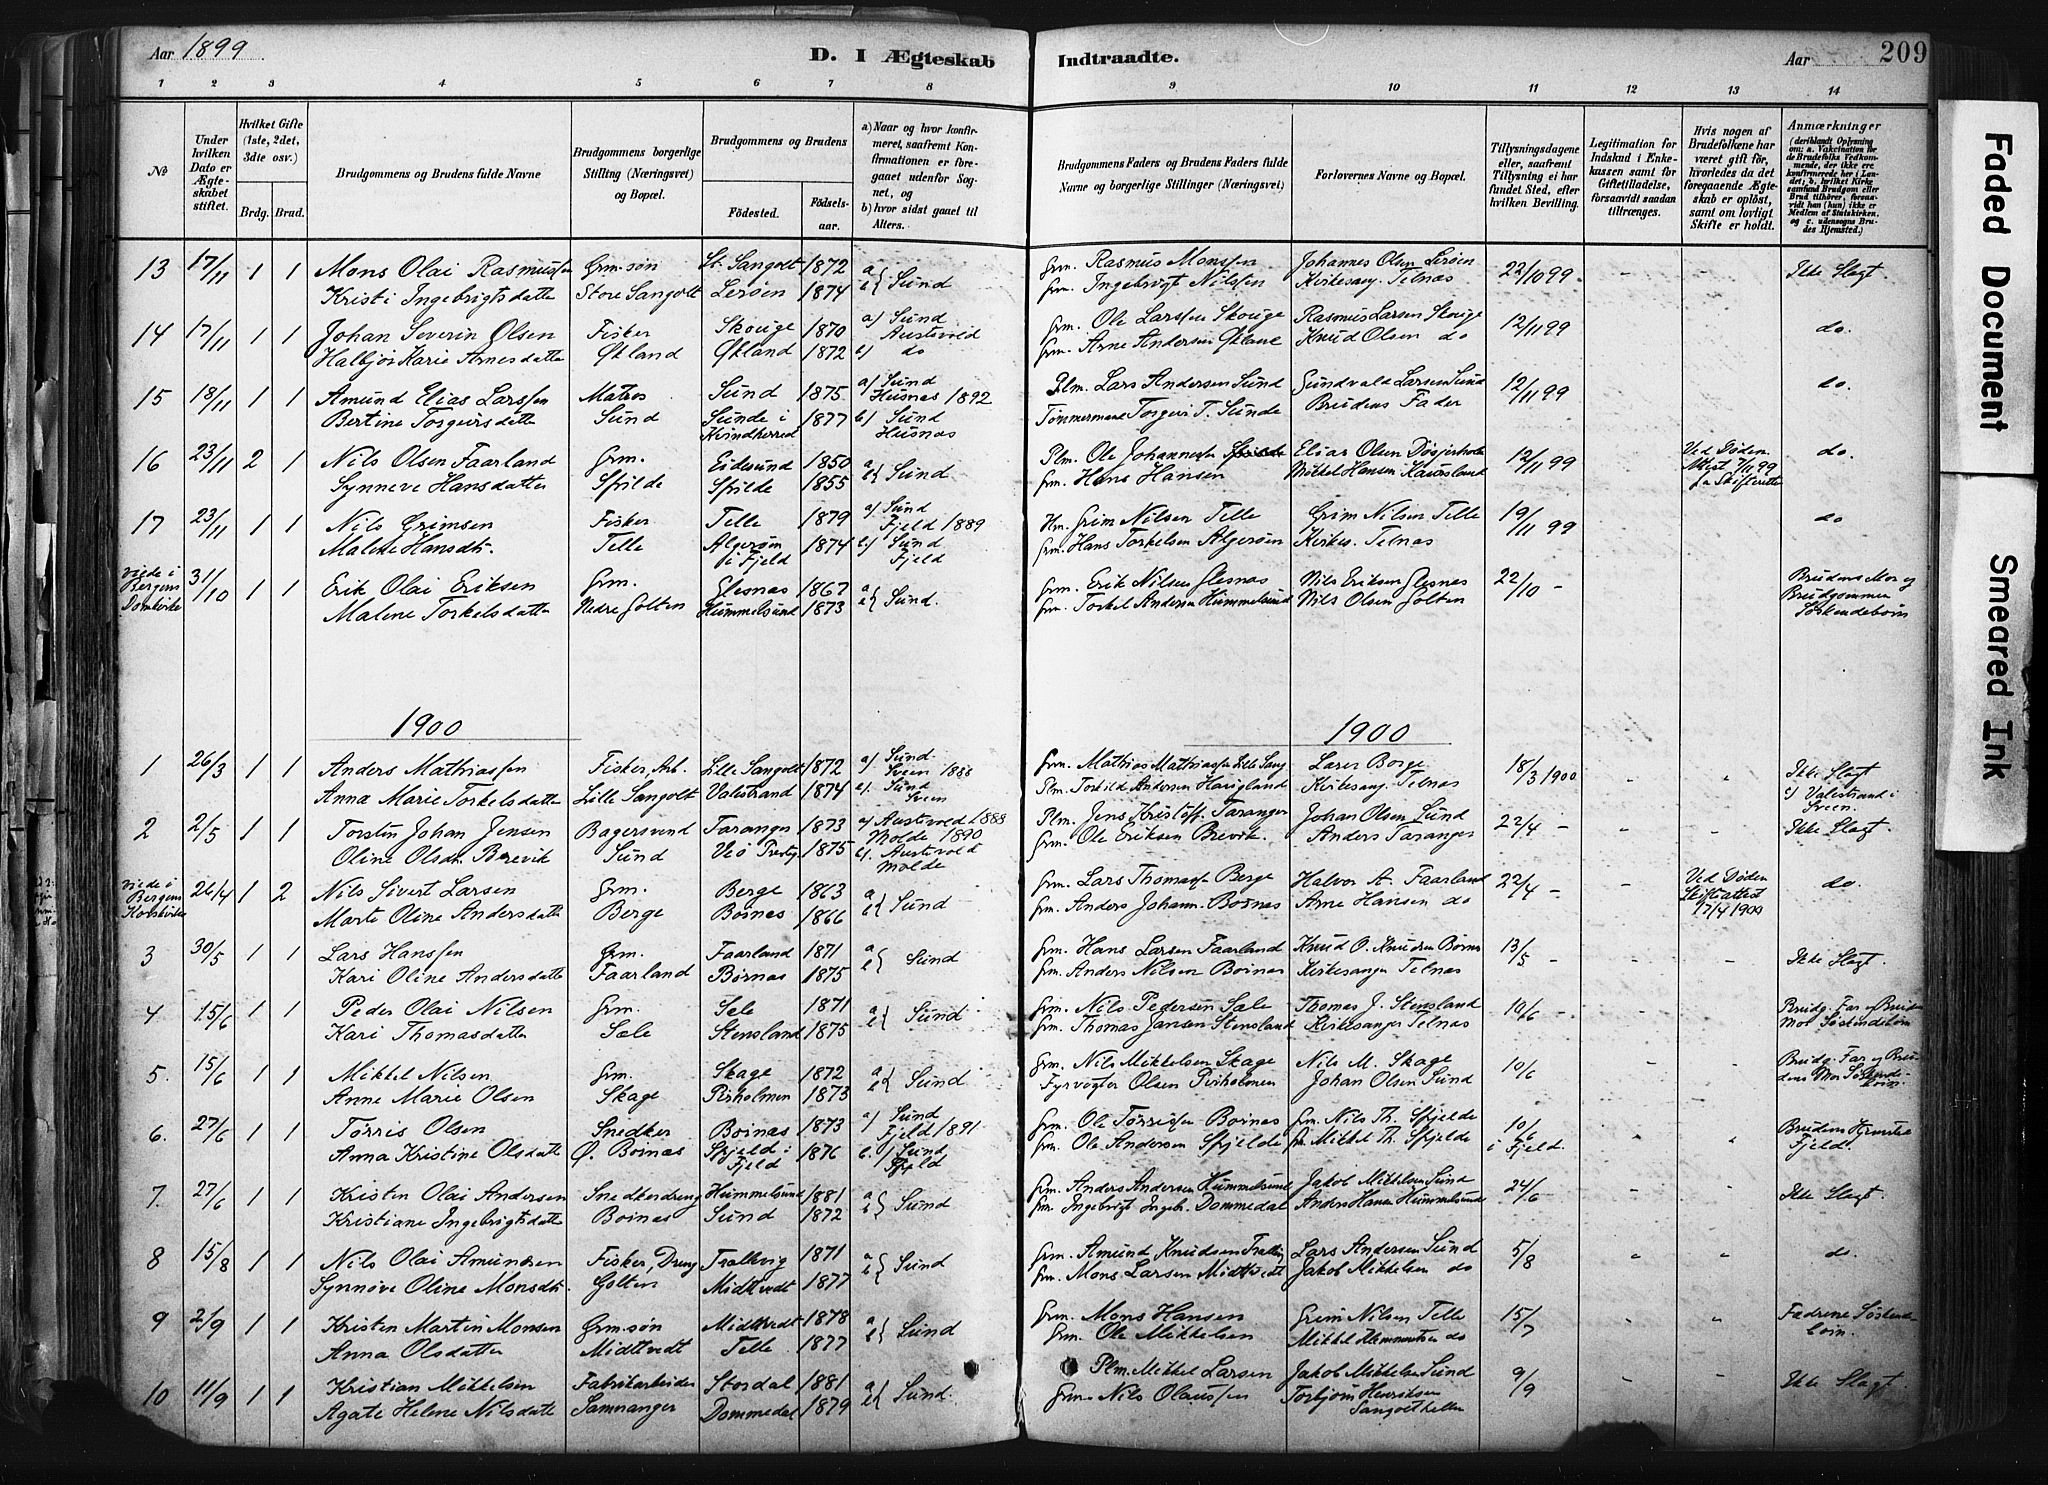 Aar 1899 D. I Ægteskab Indtraadte. Aar 209
1 2 3 4 5 6 7 8 9 10 11 12 13 14
No
Under hvilken Dato er Ægteskabet stiftet.
Hvilket Gifte (1ste, 2det, 3die osv.)
Brdg. Brud.
Brudgommens og Brudens fulde Navne
Brudgommens borgerlige Stilling (Næringsvei) og Bopæl.
Brudgommens og Brudens
Fødested. Fødselsaar.
a) Naar og hvor konfirmeret, saafremt Konfirmationen er foregaaet udenfor Sognet, og
b) hvor sidst gaaet til Alters.
Brudgommens Faders og Brudens Faders fulde Navne og borgerlige Stillinger (Næringsvei)
Forlovernes Navne og Bopæl.
Tillysningsdagene eller, saafremt Tillysning ei har fundet Sted, efter hvilken Bevilling.
Legitimation for Indskud i Enkekassen samt for Giftetilladelse, forsaavidt saadan tiltrænges.
Hvis nogen af Brudefolkene har været gift før, hvorledes da det foregaaende Ægteskab er opløst, samt om lovligt Skifte er holdt.
Anmærkninger (deriblandt Oplysning om: a. Vakcination for de Brudefolks Vedkommende, der ikke ere konfirmerede her i Landet; b. hvilket Kirkesamfund Brudgom eller Brud tilhører, forsaavidt han (hun) ikke er Medlem af Statskirken, og c. udensogns Brudes Hjemsted.)
13 17/11 1 1 Mons Olai Rasmussen Grm.søn St. Sangolt 1872 a Sund Grm. Rasmus Monsen Johannes Olsen Lerøen 22/10 99 Ikke Slægt.
Kristi Ingebrigtsdatter Store Sangolt Lerøen 1874 b Grm. Ingebrigt Nilssen Kirkesang. Telnæs
14 17/11 1 1 Johan Severin Olsen Fisker Skouge 1870 a) Sund Grm. Ole Larssen Skouge Rasmus Larsen Skouge 12/11 99 do.
Austevold
Økland Økland 1872 b) do Grm. Arne Andersen Knud Olsen do
15 18/11 1 1 Amund Elias Larssen Matros Sund 1875 a) Sund Plm. Lars Andersen Sund Larsen Sund 12/11 99 do.
Husnæs 1892
Bertine Torgersdatter Sund Sunde i Kvindherred 1877 b) Sund Husnæs Tømmermand T. Sunde Brudens Fader
16 23/11 2 1 Nils Olsen Faarland Grm. Eidesund 1850 a Sund Plm. Ole Johannessen Elias Olsen 12/11 99 Ved Døden do.
Synneve Hansdatter Spilde Spilde 1855 b Grm. Hans Hansen Mikkel Hansen
17 23/11 1 1 Nils Grimsen Fisker Telle 1879 a) Sund Hm. Grim Nilsen Telle Grim Nilsen Telle 19/11 99 do
Fjeld 1889
Malene Hansdt. Telle Algerøen i Fjeld 1874 b) Sund Fjeld Grm. Hans Torkelsen Algerøen Kirkes. Telnæs
viede i Bergens Domkirke 31/10 1 1 Erik Olai Eriksen Grm. Glesnæs 1867 a Sund. Grm. Erik Nilsen Glesnæs Nils Eriksen Glesnæs 22/10 - Brudens Mor og Brudgommen Søskendebørn
Malene Torkelsdatter Nedre Golten Hummelsund 1873 b Grm. Torkel Andersen Hummelsund Nils Olsen Golten
1900 1900
1 26/3 1 1 Anders Mathiassen Fisker, Arb. Lille Sangolt 1872 a) Sund Grm. Mathias Mathiassen Lille Sang. Lars Borge 18/3 1900 Ikke Slægt
Sveen 1888
Anna Marie Torkelsdatter Lille Sangolt Valestrand 1874 b). Sund Sveen Plm. Torkild Andersen Kirkesang. Telnæs c) Valestrand i Sveen.
2 2/5 1 1 Torsten Johan Jensen Bagersvend Taranger 1873 a) Austevold 1888 Plm. Jens Kristoff. Taranger Johan Olsen Sund 22/4 - Ikke Slægt.
Molde 1890
Oline Olsdt. Brevik Sund Veø 1875 b). Austevold Molde Grm. Ole Eriksen Brevik. Anders Taranger
viede i Bergens Korskirke 26/4 1 2 Nils Sivert Larsen Grm. Berge 1863 a Sund Grm. Lars Thomassen Berge Halvor A. Faarland 22/4 - Ved Døden Skifteattest 17/4 1900 do.
Marte Oline Andersdatter Berge Bornæs 1866 b Grm. Anders Johann. Bornæs Arne Hansen do
3 30/5 1 1 Lars Hanssen Grm. Faarland 1871 a Sund Grm. Hans Larsen Faarland Knud O. Knudsen 13/5 - Ikke Slægt.
Kari Oline Andersdatter Faarland Bornæs 1875 b Grm. Anders Nilsen Bornæs Kirkesanger Telnæs
4 15/6 1 1 Peder Olai Nilsen Grm. Sæle 1871 a Sund Grm. Nils Pedersen Sæle Thomas J. Stensland 10/6 - Brudg. Far og Brudens Mor Søskendebørn
Kari Thomasdatter Sæle Stensland 1875 b Grm. Thomas Jansen Stensland Kirkesanger Telnæs
5. 15/6 1 1 Mikkel Nilsen Grm. Skage 1872 a Sund Grm. Nils Mikkelsen Skage Nils M. Skage 10/6 Brudg. Far og Brudens Mor Søskendebørn.
Anne Marie Olsen Skage Pirholmen 1873 b Fyrvogter Olsen Pirholmen Johan Olsen Sund
6. 27/6 1 1 Tørris Olsen Snedker Bornæs 1873 a) Sund Grm. Ole Tørrissen Bornæs Grm. Nils Th. Spjelde 10/6 i Fjeld. Brudens Hjemsted Fjeld.
Fjeld 1891
Anna Kristine Olsdatter Ø. Bornæs Spjeld i Fjeld 1876 b.) Sund Fjeld Grm. Ole Andersen Spjelde Mikkel Th. Spjelde
7. 27/6 1 1 Kristen Olai Andersen Snedkerdreng Hummelsund 1881 a Sund Grm. Anders Andersen Hummelsund Jakob Mikkelsen Sund 24/6 - Ikke Slægt.
Kristiane Ingebrigtsdatter Bornæs Sund 1872 b Grm. Ingebrigt Ingeb. Dommedal Anders Hansen Hummelsund
8 15/8 1 1 Nils Olai Amundsen Fisker, Dreng 1871 a Sund Grm. Amund Knudsen Lars Andersen Sund 5/8 do.
Synnøve Oline Monsdt. Golten Midttvedt 1877 b Grm. Mons Larsen Midttvedt Jakob Mikkelsen do
9 2/9 1 1 Kristen Martin Monsen Grm.søn Midttvedt 1878 a Sund Grm. Mons Hansen Grim Nilsen Telle 15/7 Fædrene Søskendebørn.
Anna Olsdatter Midttvedt Telle 1877 b Grm. Ole Mikkelsen Mikkel do
10 11/9 1 1 Kristian Mikkelsen Fabrikarbeider Stordal 1881 a Sund. Plm. Mikkel Larsen Jakob Mikkelsen Sund 9/9 Ikke Slægt
Agate Helene Nilsdatter Samnanger Dommedal 1879 b Grm. Nils Olaussen Torbjørn Henriksen
Faded Document
Smeared Ink